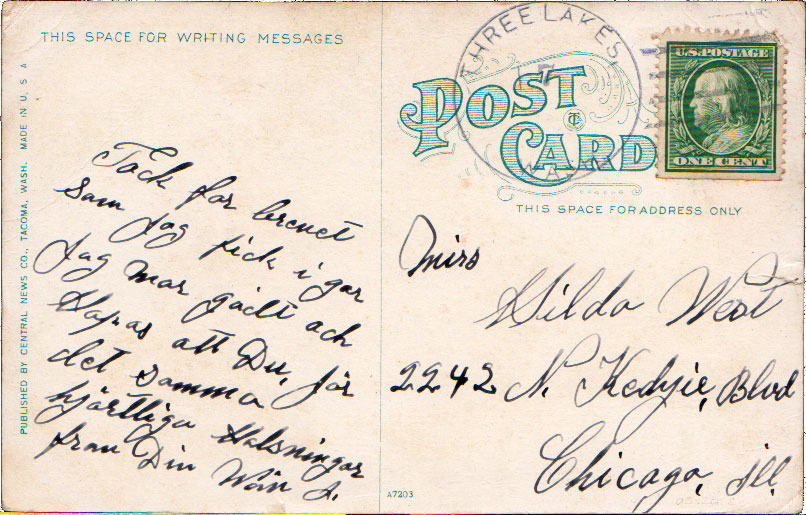 THIS SPACE FOR WRITING MESSAGES
PUBLISHED BY CENTRAL NEWS CO., TACOMA, WASH. MADE IN U S A
Tack for brevet
som Jag fick i gar
Jag mar godt och
Hopas att Du, gör
det samma
hjärtliga Halsningar
fran Din Wän A.
A7203
THREE LAKES
WA
POST CARD
U.S. POSTAGE
ONE CENT
THIS SPACE FOR ADDRESS ONLY
Miss
Hilda West
2242 N. Kedzie, Blvd
Chicago, Ill.